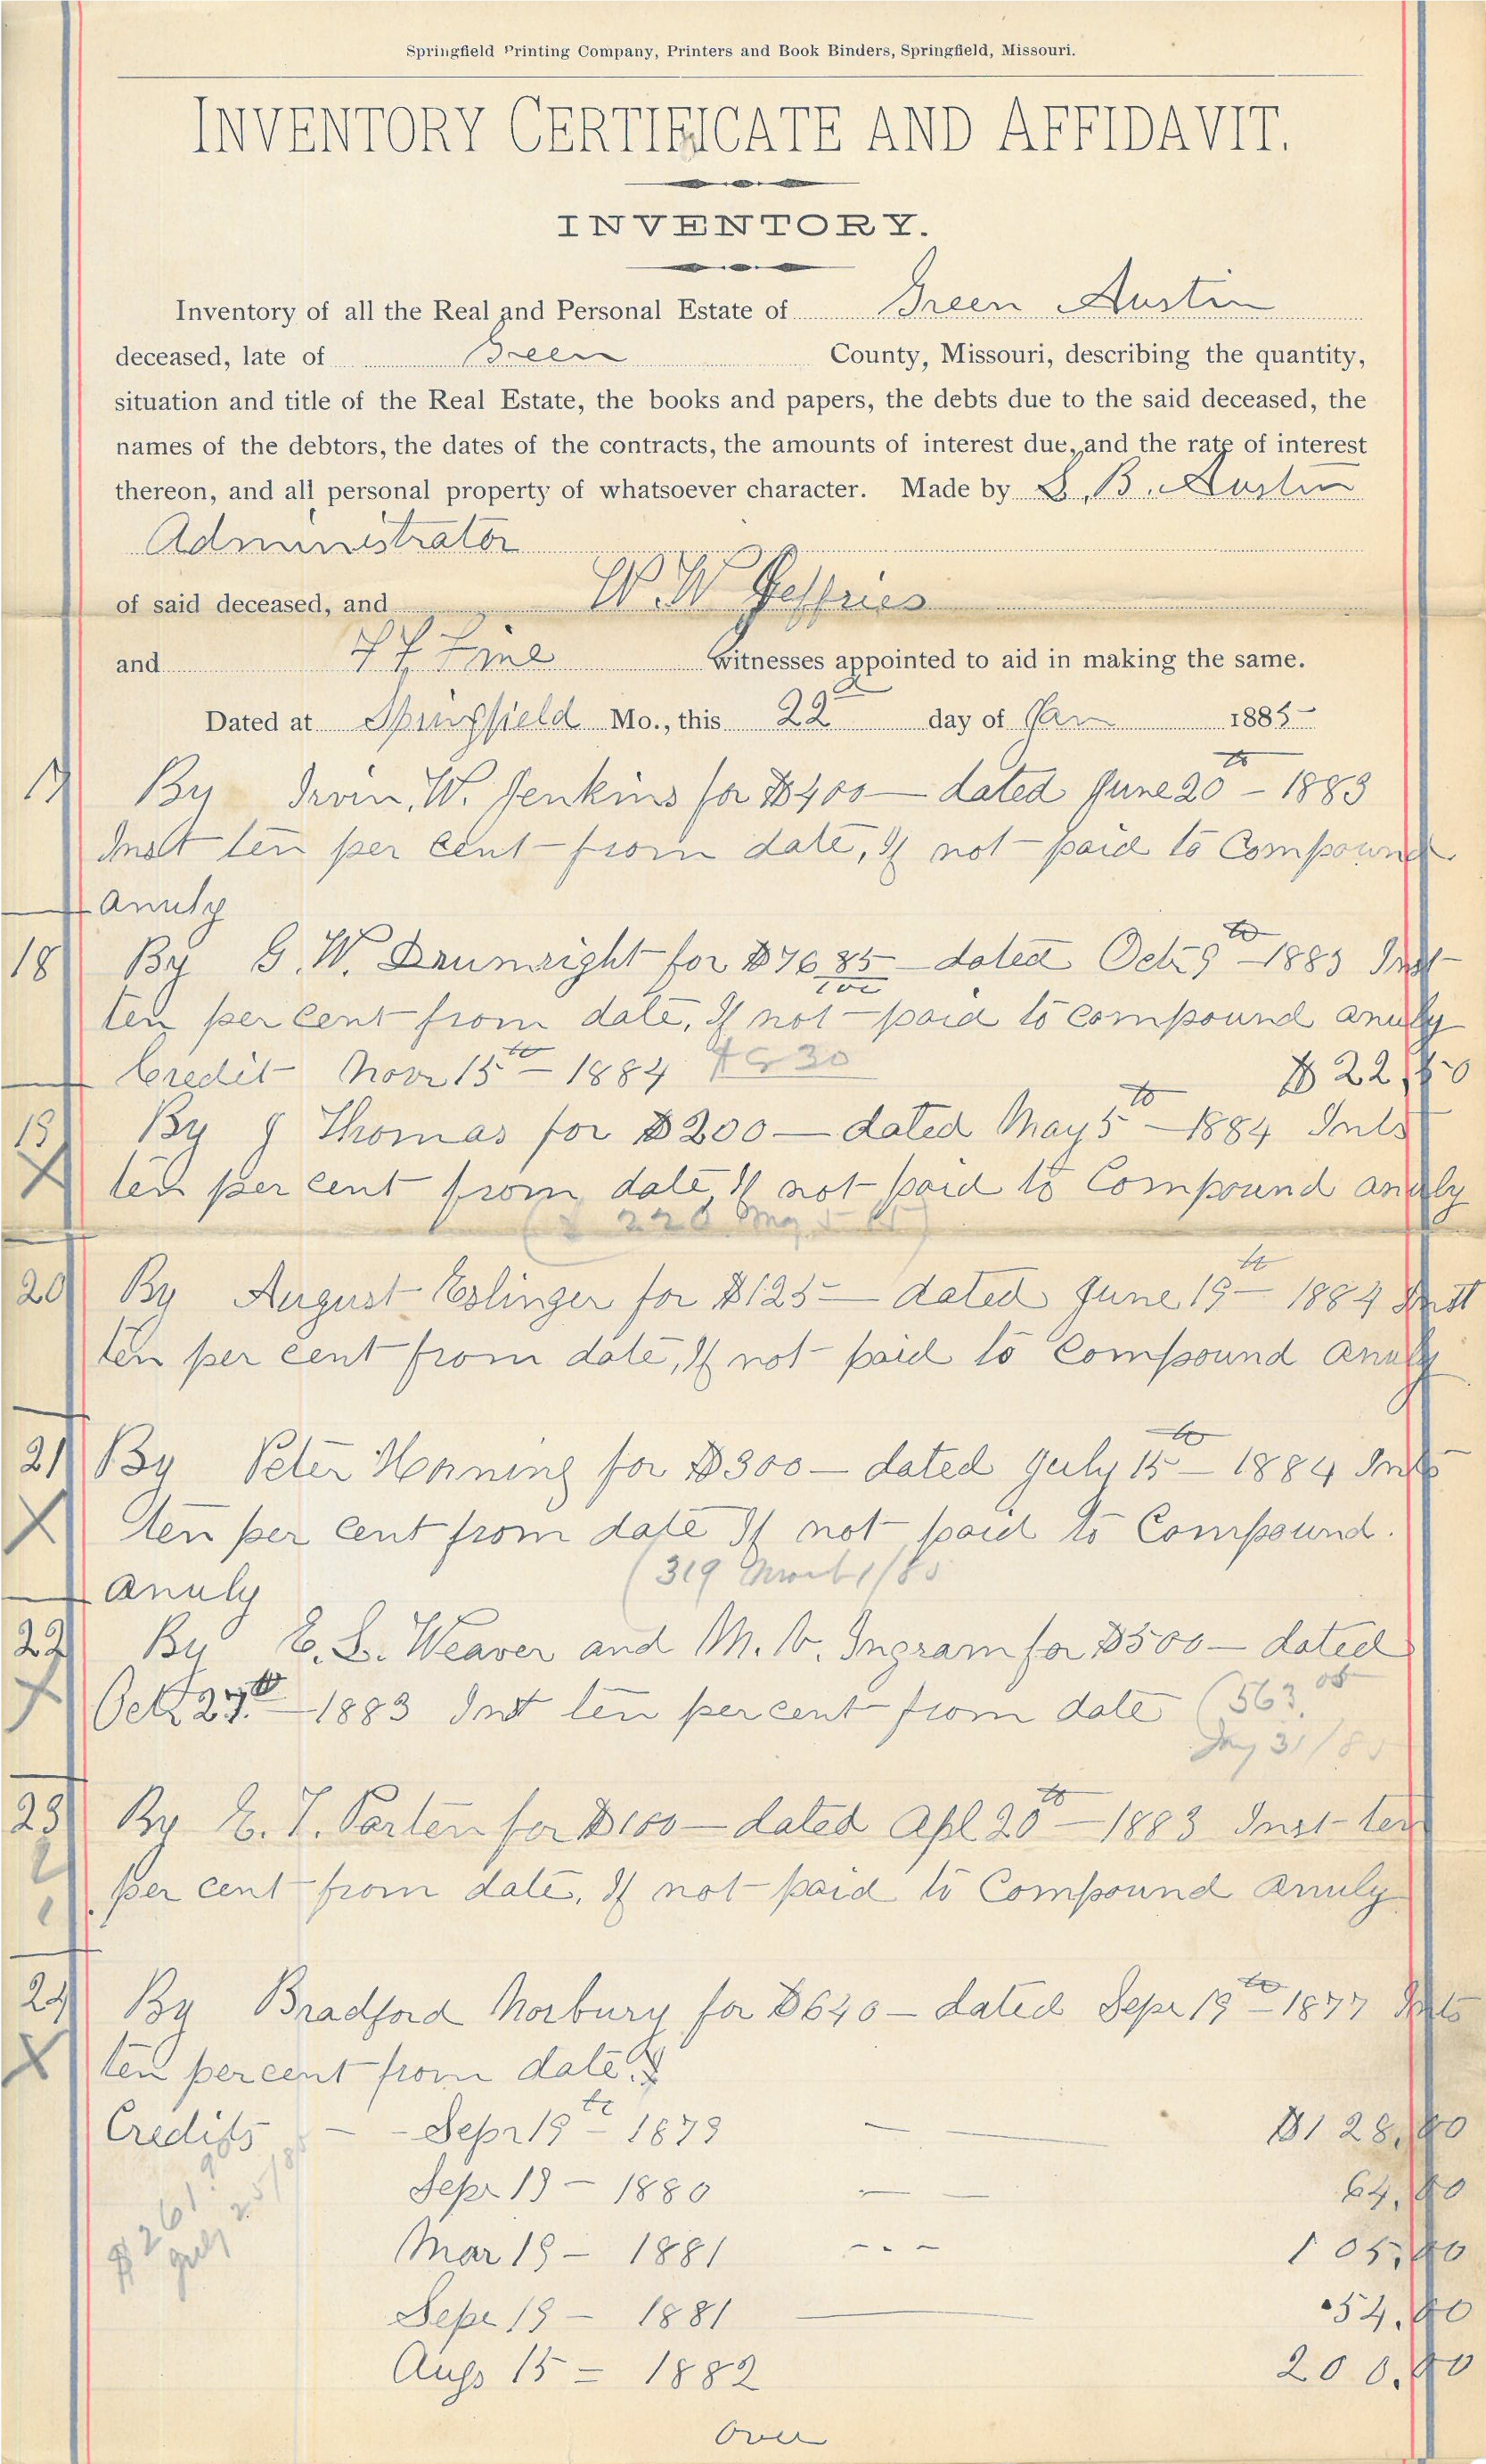 Springfield Printing Company, Printers and Book Binders, Springfield, Missouri.
INVENTORY CERTIFICATE AND AFFIDAVIT.
INVENTORY.
Inventory of all the Real and Personal Estate of Green Austin
deceased, late of Green County, Missouri, describing the quantity,
situation and title of the Real Estate, the books and papers, the debts due to the said deceased, the
names of the debtors, the dates of the contracts, the amounts of interest due, and the rate of interest
thereon, and all personal property of whatsoever character. Made by S. B. Austin
Administrator
of said deceased, and W. W Jeffries
and witnesses appointed to aid in making the same.
Dated at Springfield Mo., this 22d day of Jan 1885
17 By Irvin, W. Jenkins for $400— dated June 20th – 1883
Inst ten per cent from date, If not paid to Compound
anuly
18 By G. W. Drumright for $76 85/100 dated Oct 9th – 1883 Inst
ten per cent from date, If not paid to compound anuly
Credit Novr 15th – 1884 $22,50
19 By J Thomas for $200— dated May 5th – 1884 Ints
X ten per cent from date, If not paid to Compound anuly
20 By August Eslinger for $125— dated June 19th – 1884 Inst
ten per cent from date, If not paid to Compound anuly
21 By Peter Horning for $300— dated July 15th – 1884 Ints
X ten per cent from date If not paid to Compound.
(319 March 1/85
anuly
22 By E. S. Weaver and M. V. Ingram for $500— dated
X Oct 27th – 1883 Inst ten per cent from date (563.05
Jay 31/85
23 By E. T. Parten for $100— dated Apl 20th – 1883 Inst ten
per cent from date, If not paid to Compound anuly
24 By Bradford Norbury for $640— dated Sepr 19th – 1877 Ints
X ten per cent from date.
Credits – - Sepr 19th – 1879 $128,00
Sepr 19 – 1880 64,00
Mar 19 – 1881 105,00
Sepr 19 – 1881 54,00
Augs 15 = 1882 200,00
$261.90
July 25/85
Over